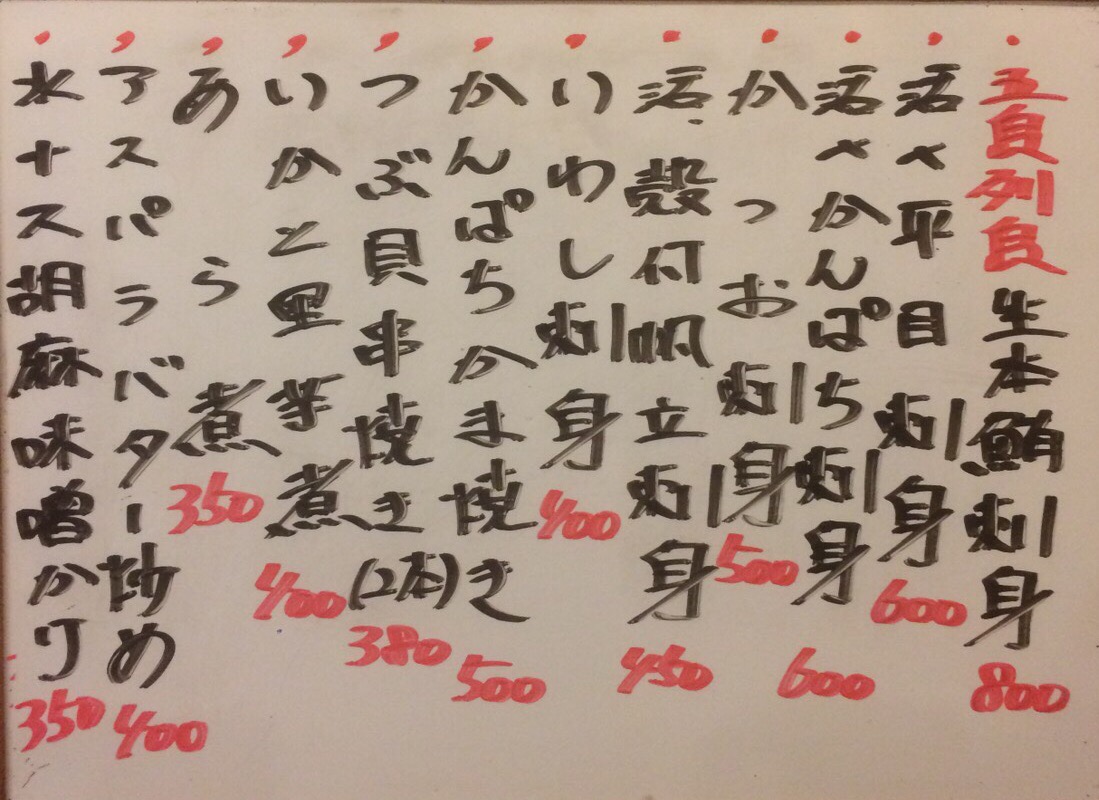 ・五島列島生本鮪刺身800
・活〆平目刺身600
・活〆かんぱち刺身600
・かつお刺身500
・活殻付帆立刺身450
・いわし刺身400
・かんぱちかま焼き500
・つぶ貝串焼き(2本)380
・いかと里芋煮400
・あら煮350
・アスパラバター炒め400
・水ナス胡麻味噌かけ350